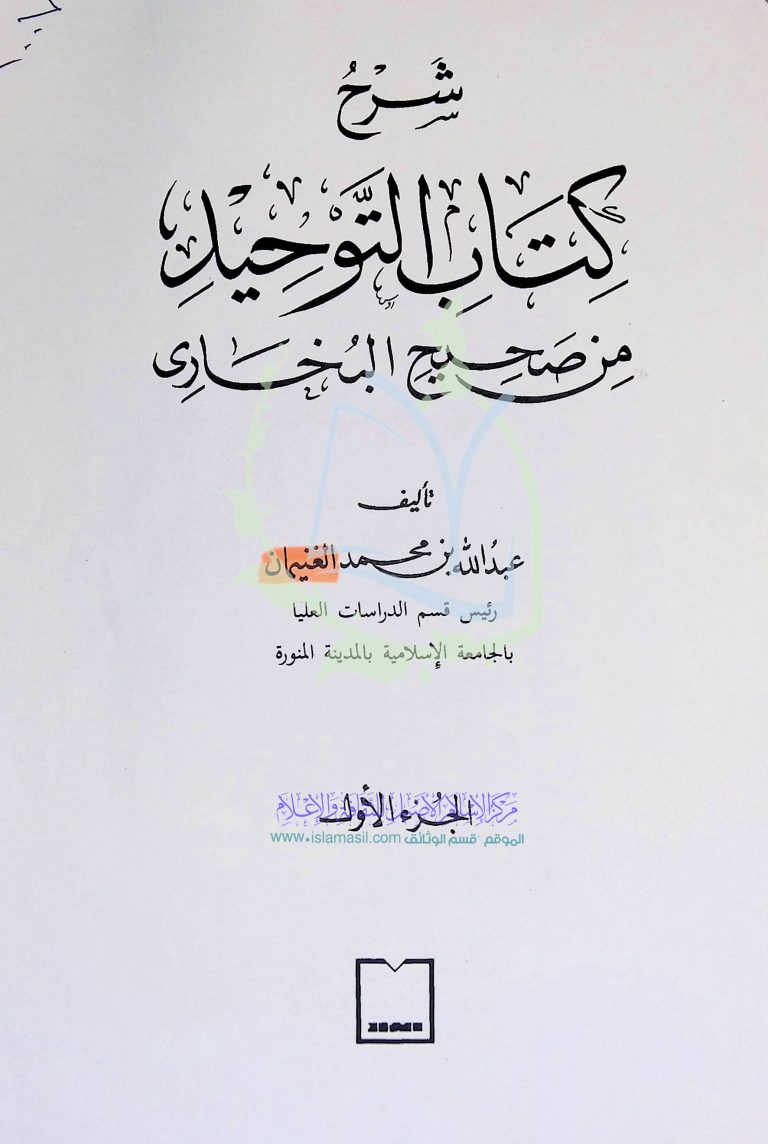 شَرْحُ
كِتَابِ التَّوْحِيدِ
مِن صَحِيحِ البُخَارِي
تأليف
عبدُالله بن محمد الغنيمان
رئيس قسم الدراسات العليا
بالجامعة الإسلامية بالمدينة المنورة
مركز الإسلام الأصيل للثقافة والإعلام
الجُزء الأول
الموقع -قسم الوثائق www.islamasil.com